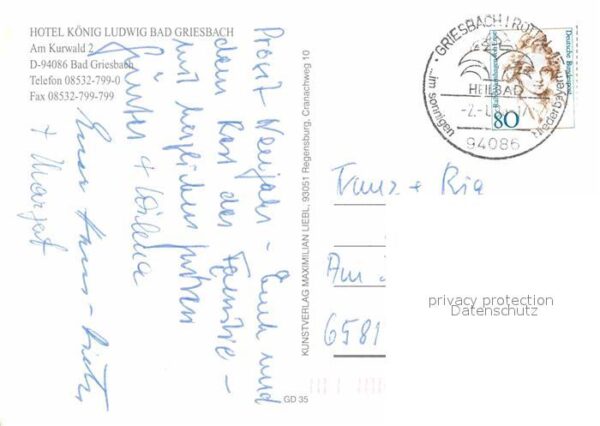 HOTEL KÖNIG LUDWIG BAD GRIESBACH
Am Kurwald 2
D-94086 Bad Griesbach
Telefon 08532-799-0
Fax 08532-799-799
Prosit Neujahr - Euch und
dem Rest der Familie -
mit herzlichen
Günter +
Euer Hans-Dieter
+ Margot
KUNSTVERLAG MAXIMILIAN LIEBL, 93051 Regensburg, Cranachweg 10
GD 35
GRIESBACH I ROTTAL
HEILBAD
-2.-1.
94086
...im sonnigen
Niederbayern
Deutsche Bundespost
80
Franz + Ria
Am
6581
privacy protection
Datenschutz